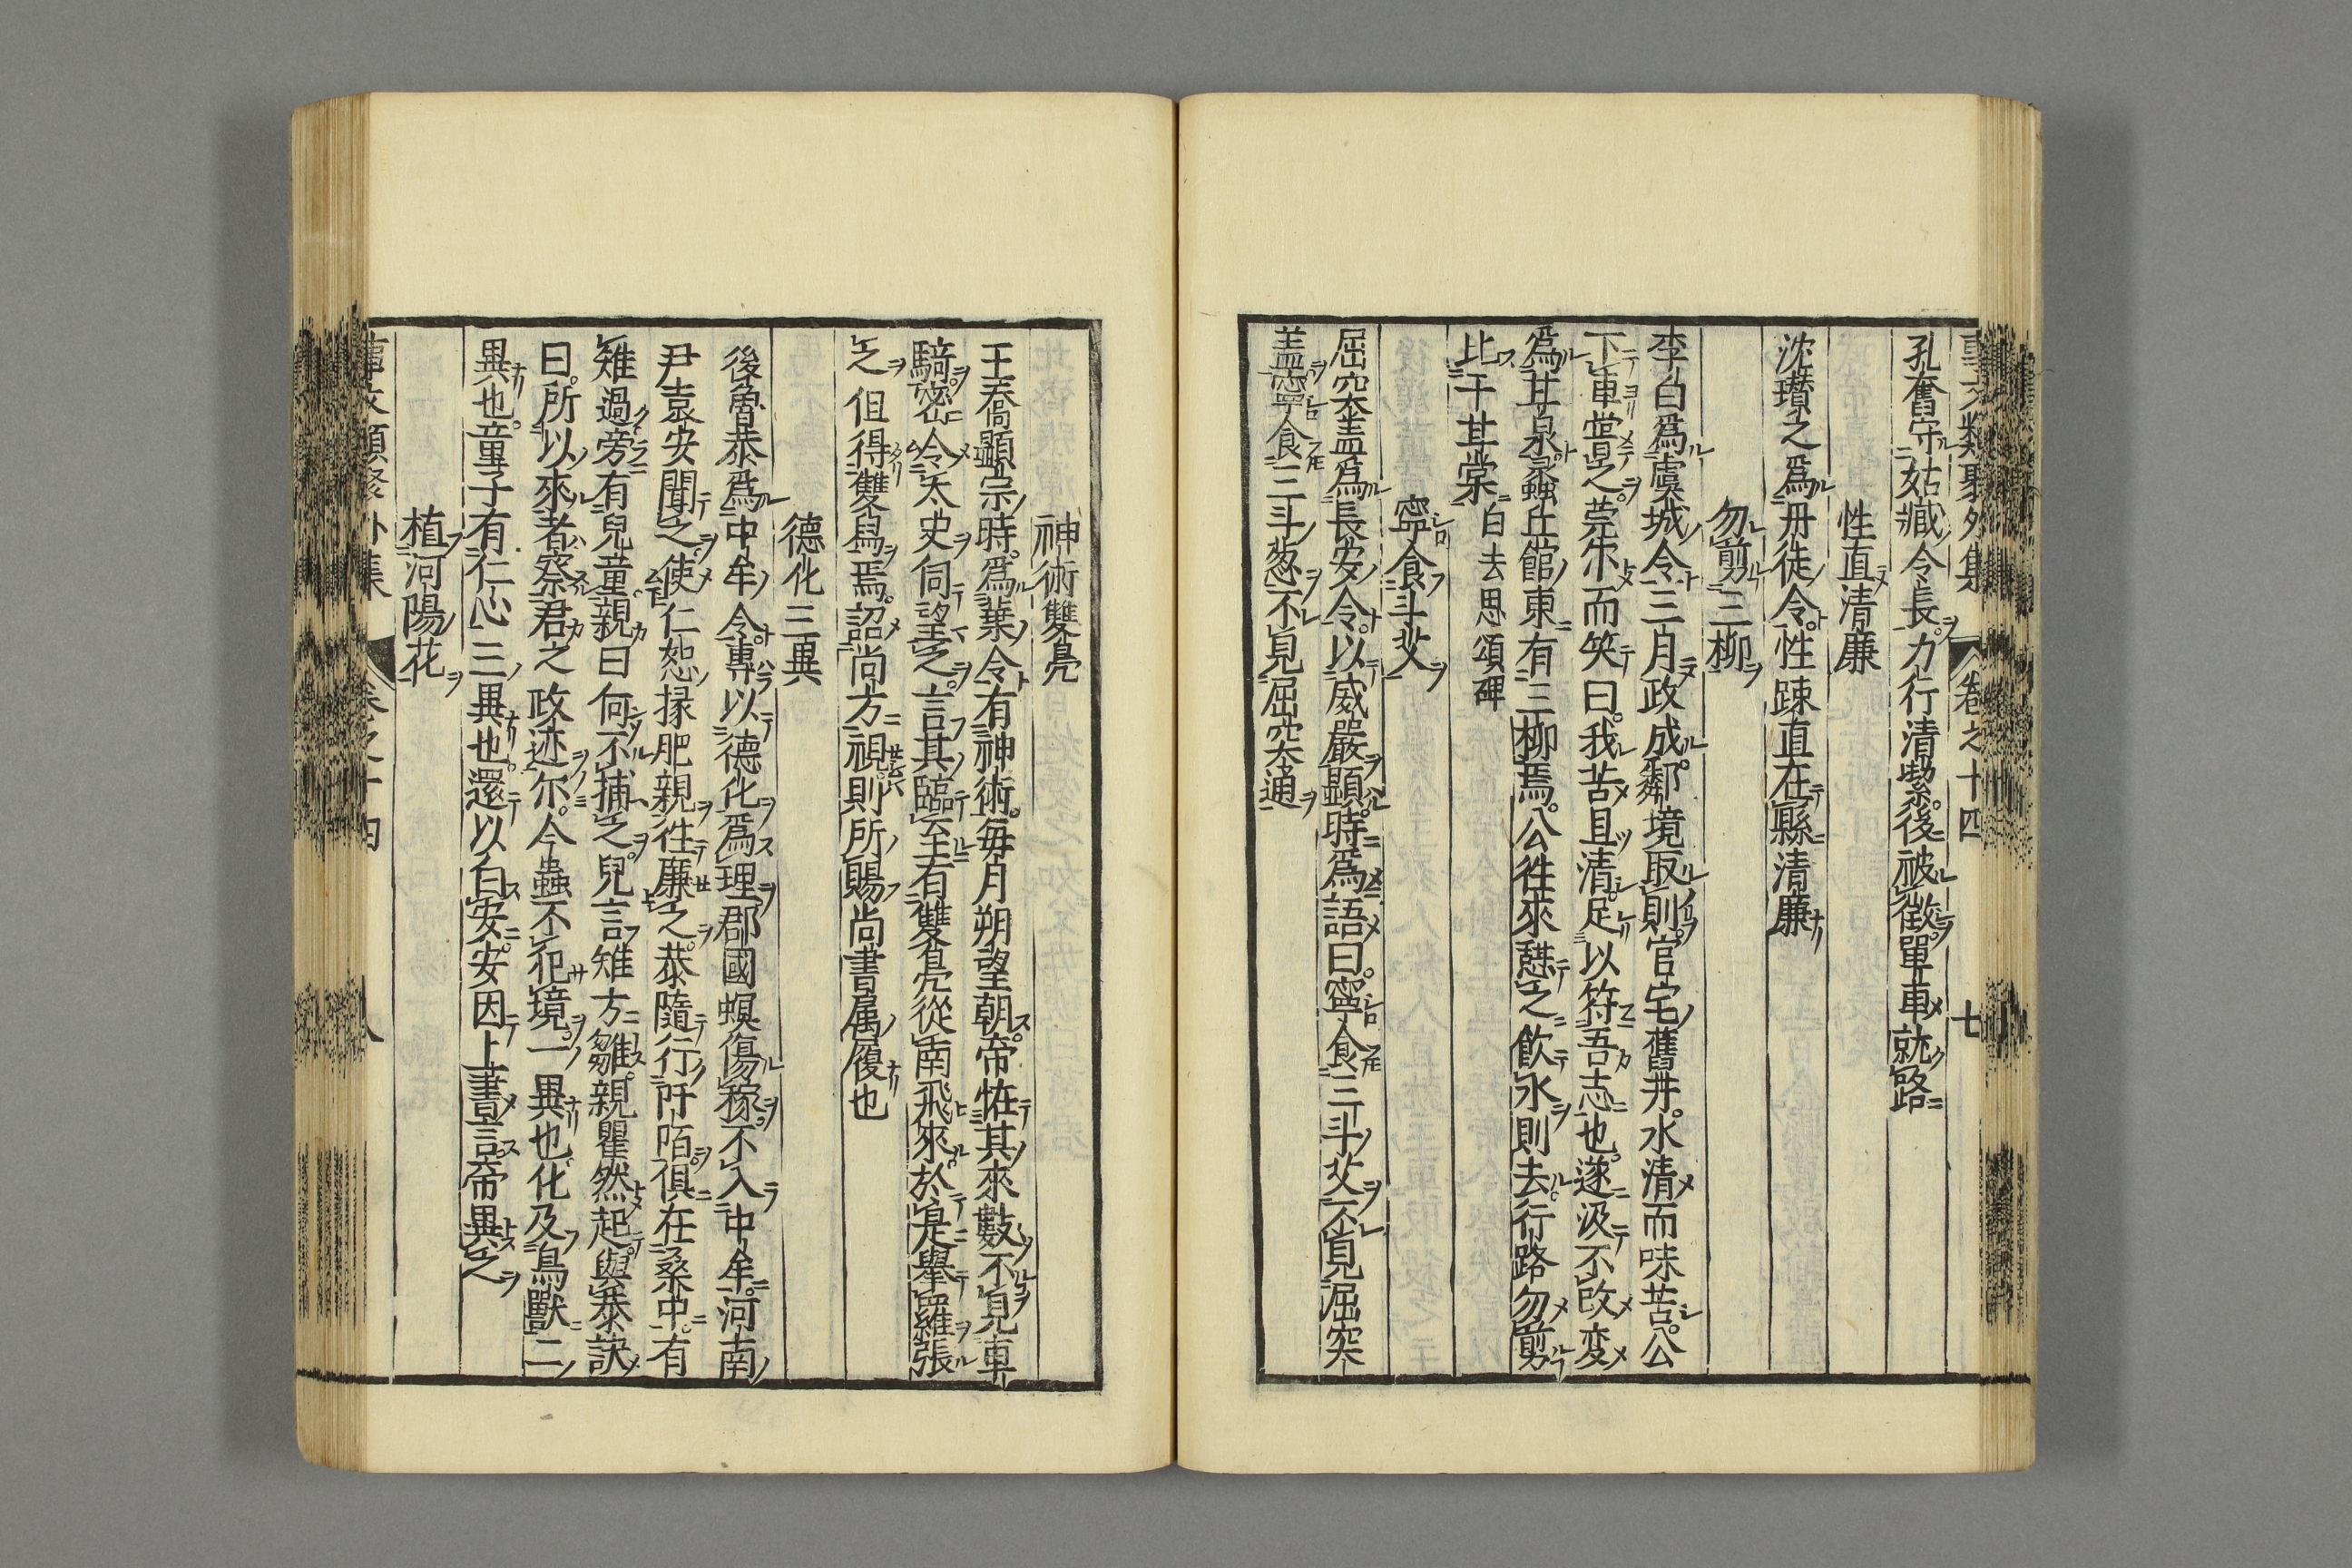 事文類聚外集 卷之十四 七
孔奮守姑臧令長力行清潔後被徵單車就路
性直清廉
沈瓚之爲丹徒令性踈直在縣清廉
勿剪三柳
李白爲虞城令三月政成鄰境取則官宅舊井水清而味苦公
下車甞之莞尒而笑曰我苦且清足以符吾志也遂汲不改変
爲甘泉蠡丘館東有三柳焉公徃來憇之飲水則去行路勿剪
比干甘棠 白去思頌碑
寧食斗艾
屈突盖爲長安令以威嚴顯時爲語曰寧食三斗艾不見屈突
盖寧食三斗葱不見屈突通
神術雙鳧
王喬顯宗時爲葉令有神術毎月朔望朝帝恠其來數不見車
騎密令太史伺望之言其臨至有雙鳧從南飛來於是舉羅張
之但得雙舄焉詔尚方視則所賜尚書属履也
德化三異
後魯恭爲中牟令專以德化爲理郡國螟傷稼不入中牟河南
尹袁安聞之使仁恕掾肥親徃廉之恭隨行阡陌俱在桑中有
雉過旁有兒童親曰何不捕之兒言雉方雛親瞿然起與恭訣
曰所以來者察君之政迹尒今蟲不犯境一異也化及鳥獸二
異也童子有仁心三異也還以白安安因上書言帝異之
植河陽花